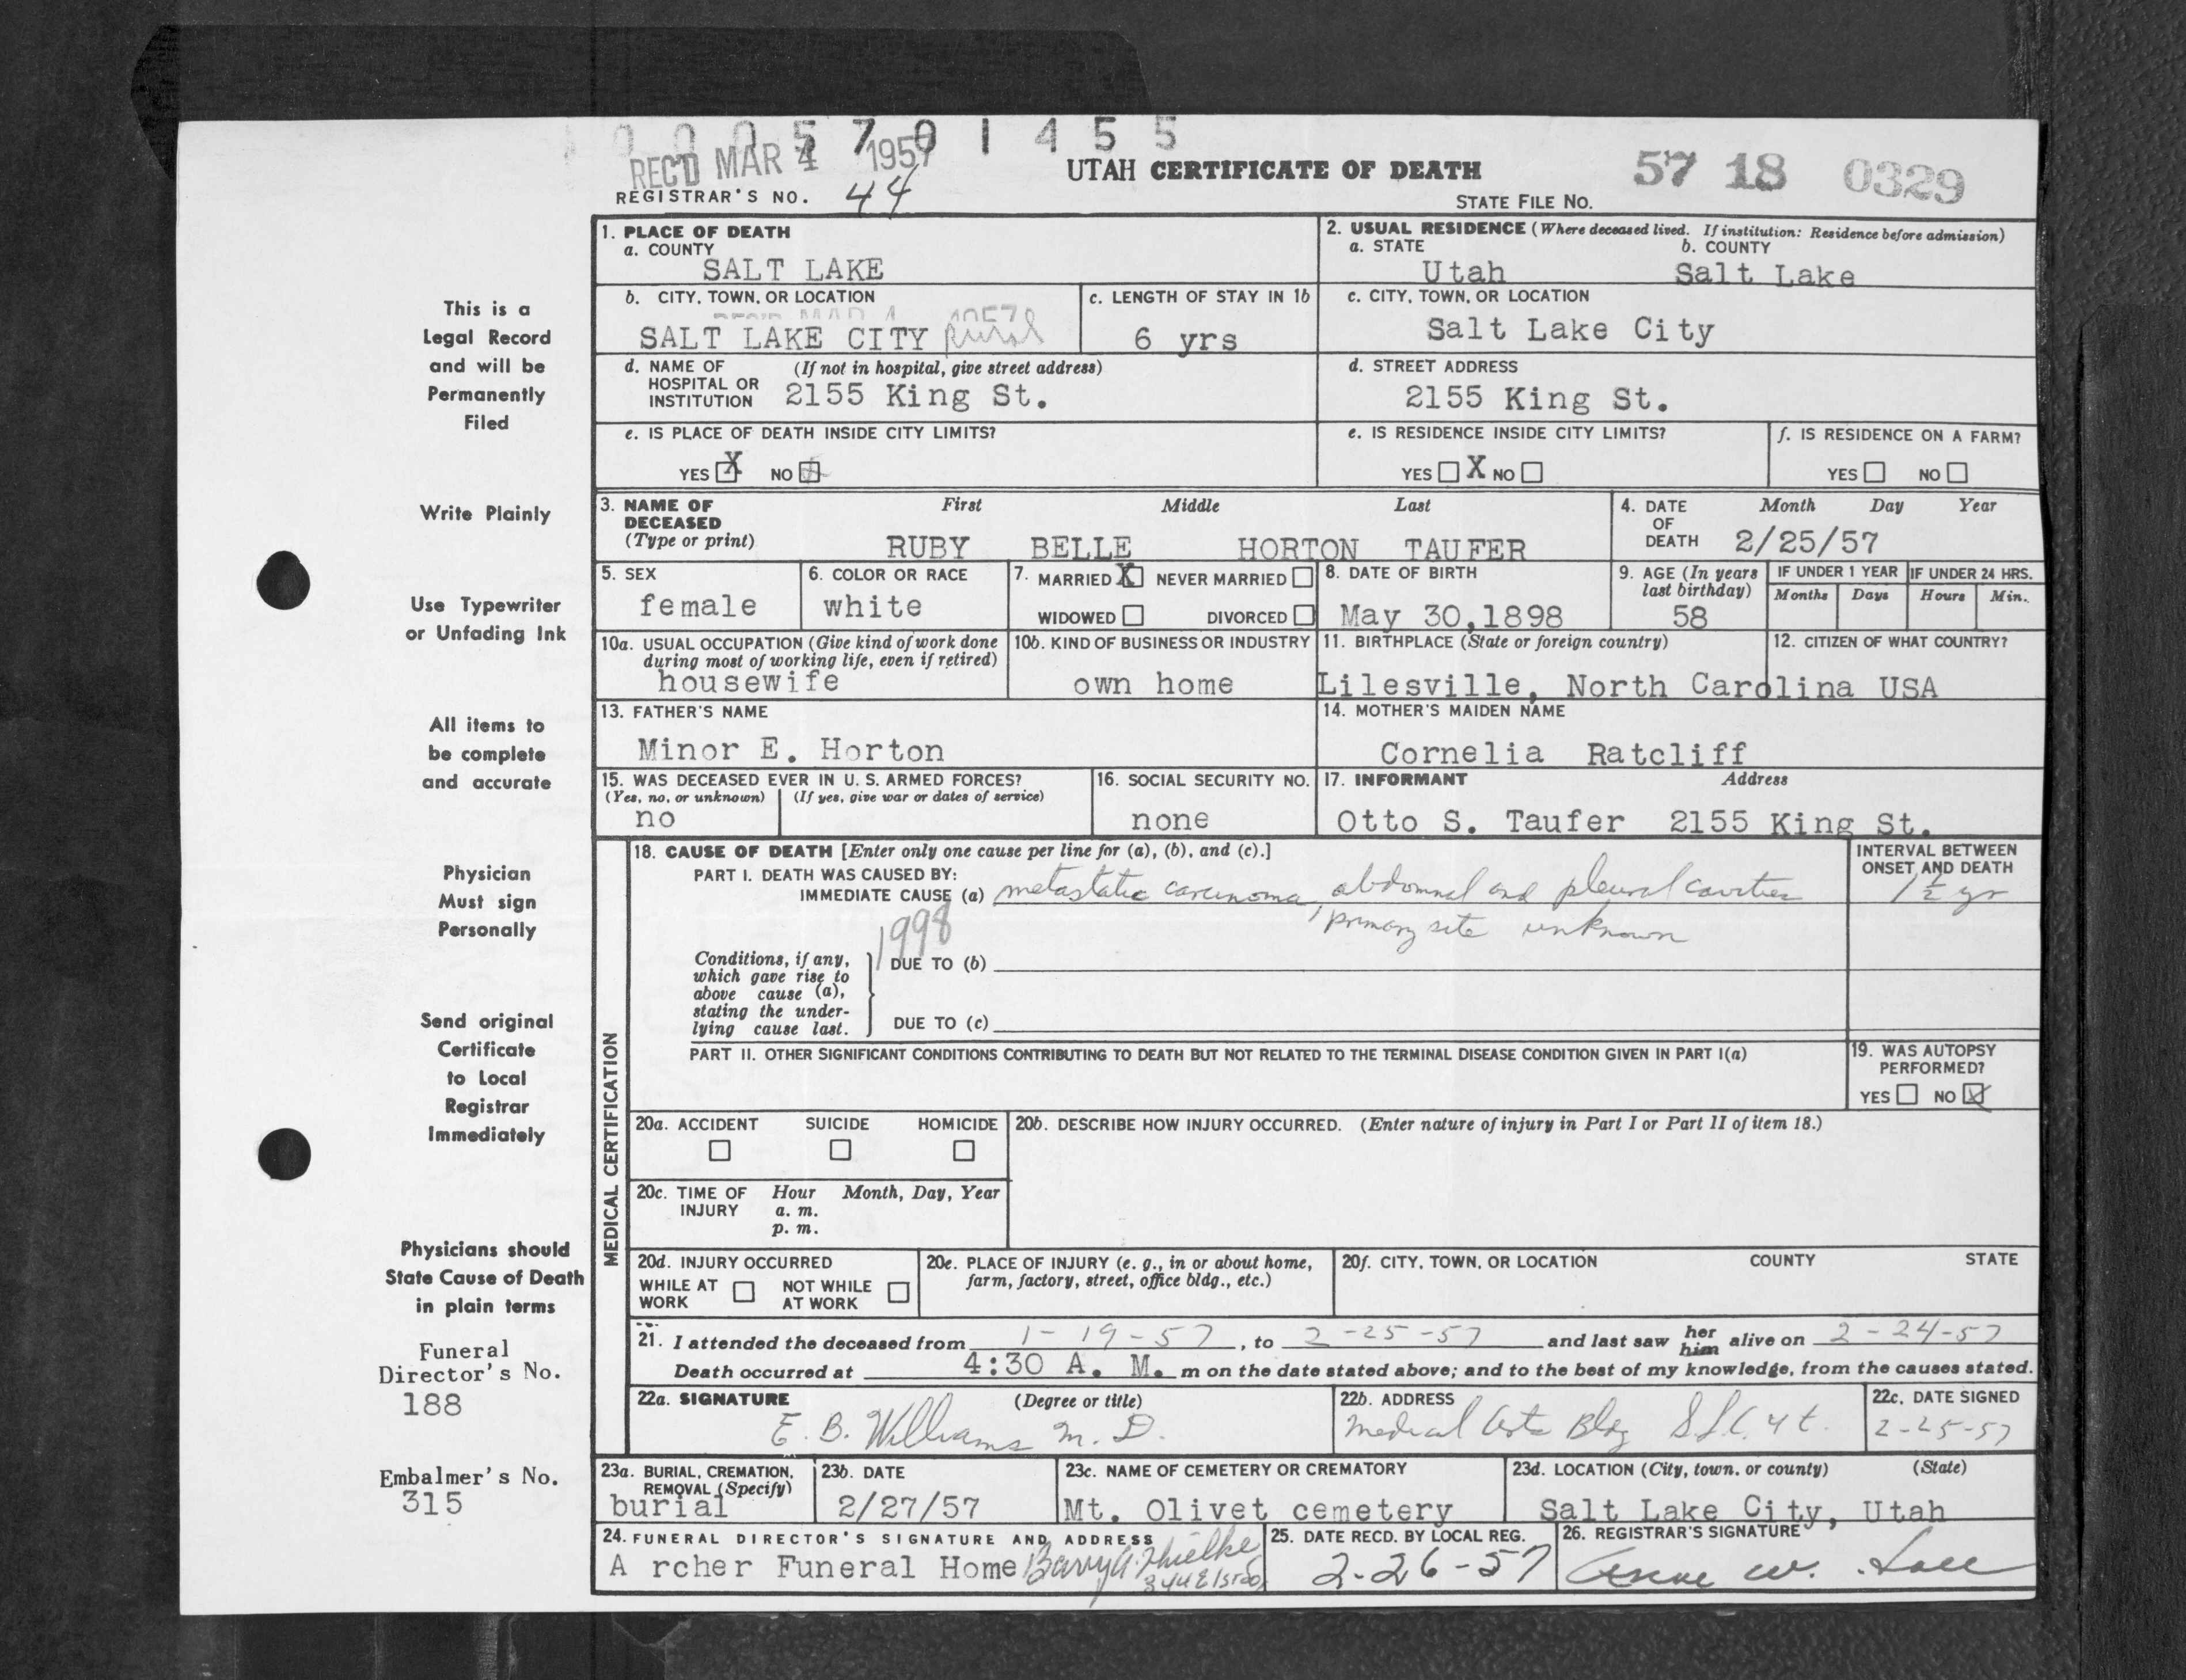 0 0 0 5 7 0 1 4 5 5
REC'D MAR 4 1957
UTAH CERTIFICATE OF DEATH
57 18 0329
REGISTRAR'S NO. 44
STATE FILE NO.
1. PLACE OF DEATH
a. COUNTY
SALT LAKE
2. USUAL RESIDENCE (Where deceased lived. If institution: Residence before admission)
a. STATE b. COUNTY
Utah Salt Lake
b. CITY, TOWN, OR LOCATION
REC'D MAR 4 1957
SALT LAKE CITY Rural
c. LENGTH OF STAY IN 1b
6 yrs
c. CITY, TOWN, OR LOCATION
Salt Lake City
d. NAME OF (If not in hospital, give street address)
HOSPITAL OR
INSTITUTION 2155 King St.
d. STREET ADDRESS
2155 King St.
e. IS PLACE OF DEATH INSIDE CITY LIMITS?
YES X NO X
e. IS RESIDENCE INSIDE CITY LIMITS?
YES X NO
f. IS RESIDENCE ON A FARM?
YES NO
3. NAME OF First Middle Last
DECEASED
(Type or print) RUBY BELLE HORTON TAUFER
4. DATE Month Day Year
OF
DEATH 2/25/57
5. SEX
female
6. COLOR OR RACE
white
7. MARRIED X NEVER MARRIED
WIDOWED DIVORCED
8. DATE OF BIRTH
May 30, 1898
9. AGE (In years
last birthday)
58
IF UNDER 1 YEAR IF UNDER 24 HRS.
Months Days Hours Min.
10a. USUAL OCCUPATION (Give kind of work done
during most of working life, even if retired)
housewife
10b. KIND OF BUSINESS OR INDUSTRY
own home
11. BIRTHPLACE (State or foreign country)
12. CITIZEN OF WHAT COUNTRY?
Lilesville, North Carolina USA
13. FATHER'S NAME
Minor E. Horton
14. MOTHER'S MAIDEN NAME
Cornelia Ratcliff
15. WAS DECEASED EVER IN U. S. ARMED FORCES?
(Yes, no, or unknown) (If yes, give war or dates of service)
no
16. SOCIAL SECURITY NO.
none
17. INFORMANT Address
Otto S. Taufer 2155 King St.
MEDICAL CERTIFICATION
18. CAUSE OF DEATH [Enter only one cause per line for (a), (b), and (c).]
PART I. DEATH WAS CAUSED BY:
IMMEDIATE CAUSE (a) metastatic carcinoma, abdominal and pleural cavities
primary site unknown
INTERVAL BETWEEN
ONSET AND DEATH
1 1/2 yr
1998
Conditions, if any,
which gave rise to
above cause (a),
stating the under-
lying cause last.
DUE TO (b)
DUE TO (c)
PART II. OTHER SIGNIFICANT CONDITIONS CONTRIBUTING TO DEATH BUT NOT RELATED TO THE TERMINAL DISEASE CONDITION GIVEN IN PART I(a)
19. WAS AUTOPSY
PERFORMED?
YES NO X
20a. ACCIDENT SUICIDE HOMICIDE
20b. DESCRIBE HOW INJURY OCCURRED. (Enter nature of injury in Part I or Part II of item 18.)
20c. TIME OF Hour Month, Day, Year
INJURY a. m.
p. m.
20d. INJURY OCCURRED
WHILE AT NOT WHILE
WORK AT WORK
20e. PLACE OF INJURY (e. g., in or about home,
farm, factory, street, office bldg., etc.)
20f. CITY, TOWN, OR LOCATION COUNTY STATE
21. I attended the deceased from 1-19-57, to 2-25-57 and last saw her him alive on 2-24-57
Death occurred at 4:30 A. M. m on the date stated above; and to the best of my knowledge, from the causes stated.
22a. SIGNATURE (Degree or title)
E. B. Williams M. D.
22b. ADDRESS
Medical Arts Bldg S.L.C. Ut.
22c. DATE SIGNED
2-25-57
23a. BURIAL, CREMATION,
REMOVAL (Specify)
burial
23b. DATE
2/27/57
23c. NAME OF CEMETERY OR CREMATORY
Mt. Olivet cemetery
23d. LOCATION (City, town, or county) (State)
Salt Lake City, Utah
24. FUNERAL DIRECTOR'S SIGNATURE AND ADDRESS
A rcher Funeral Home Barry A. Thielke
25. DATE RECD. BY LOCAL REG.
2-26-57
26. REGISTRAR'S SIGNATURE
This is a
Legal Record
and will be
Permanently
Filed
Write Plainly
Use Typewriter
or Unfading Ink
All items to
be complete
and accurate
Physician
Must sign
Personally
Send original
Certificate
to Local
Registrar
Immediately
Physicians should
State Cause of Death
in plain terms
Funeral
Director's No.
188
Embalmer's No.
315